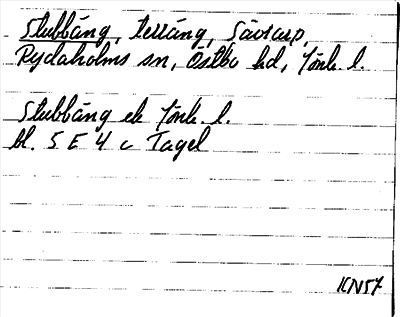 Stubbäng, terräng, Sävsarp,
Rydaholms sn, Östbo hd, Jönk. l.
Stubbäng ek Jönk. l.
bl. 5 E 4 c Tagel
KN57